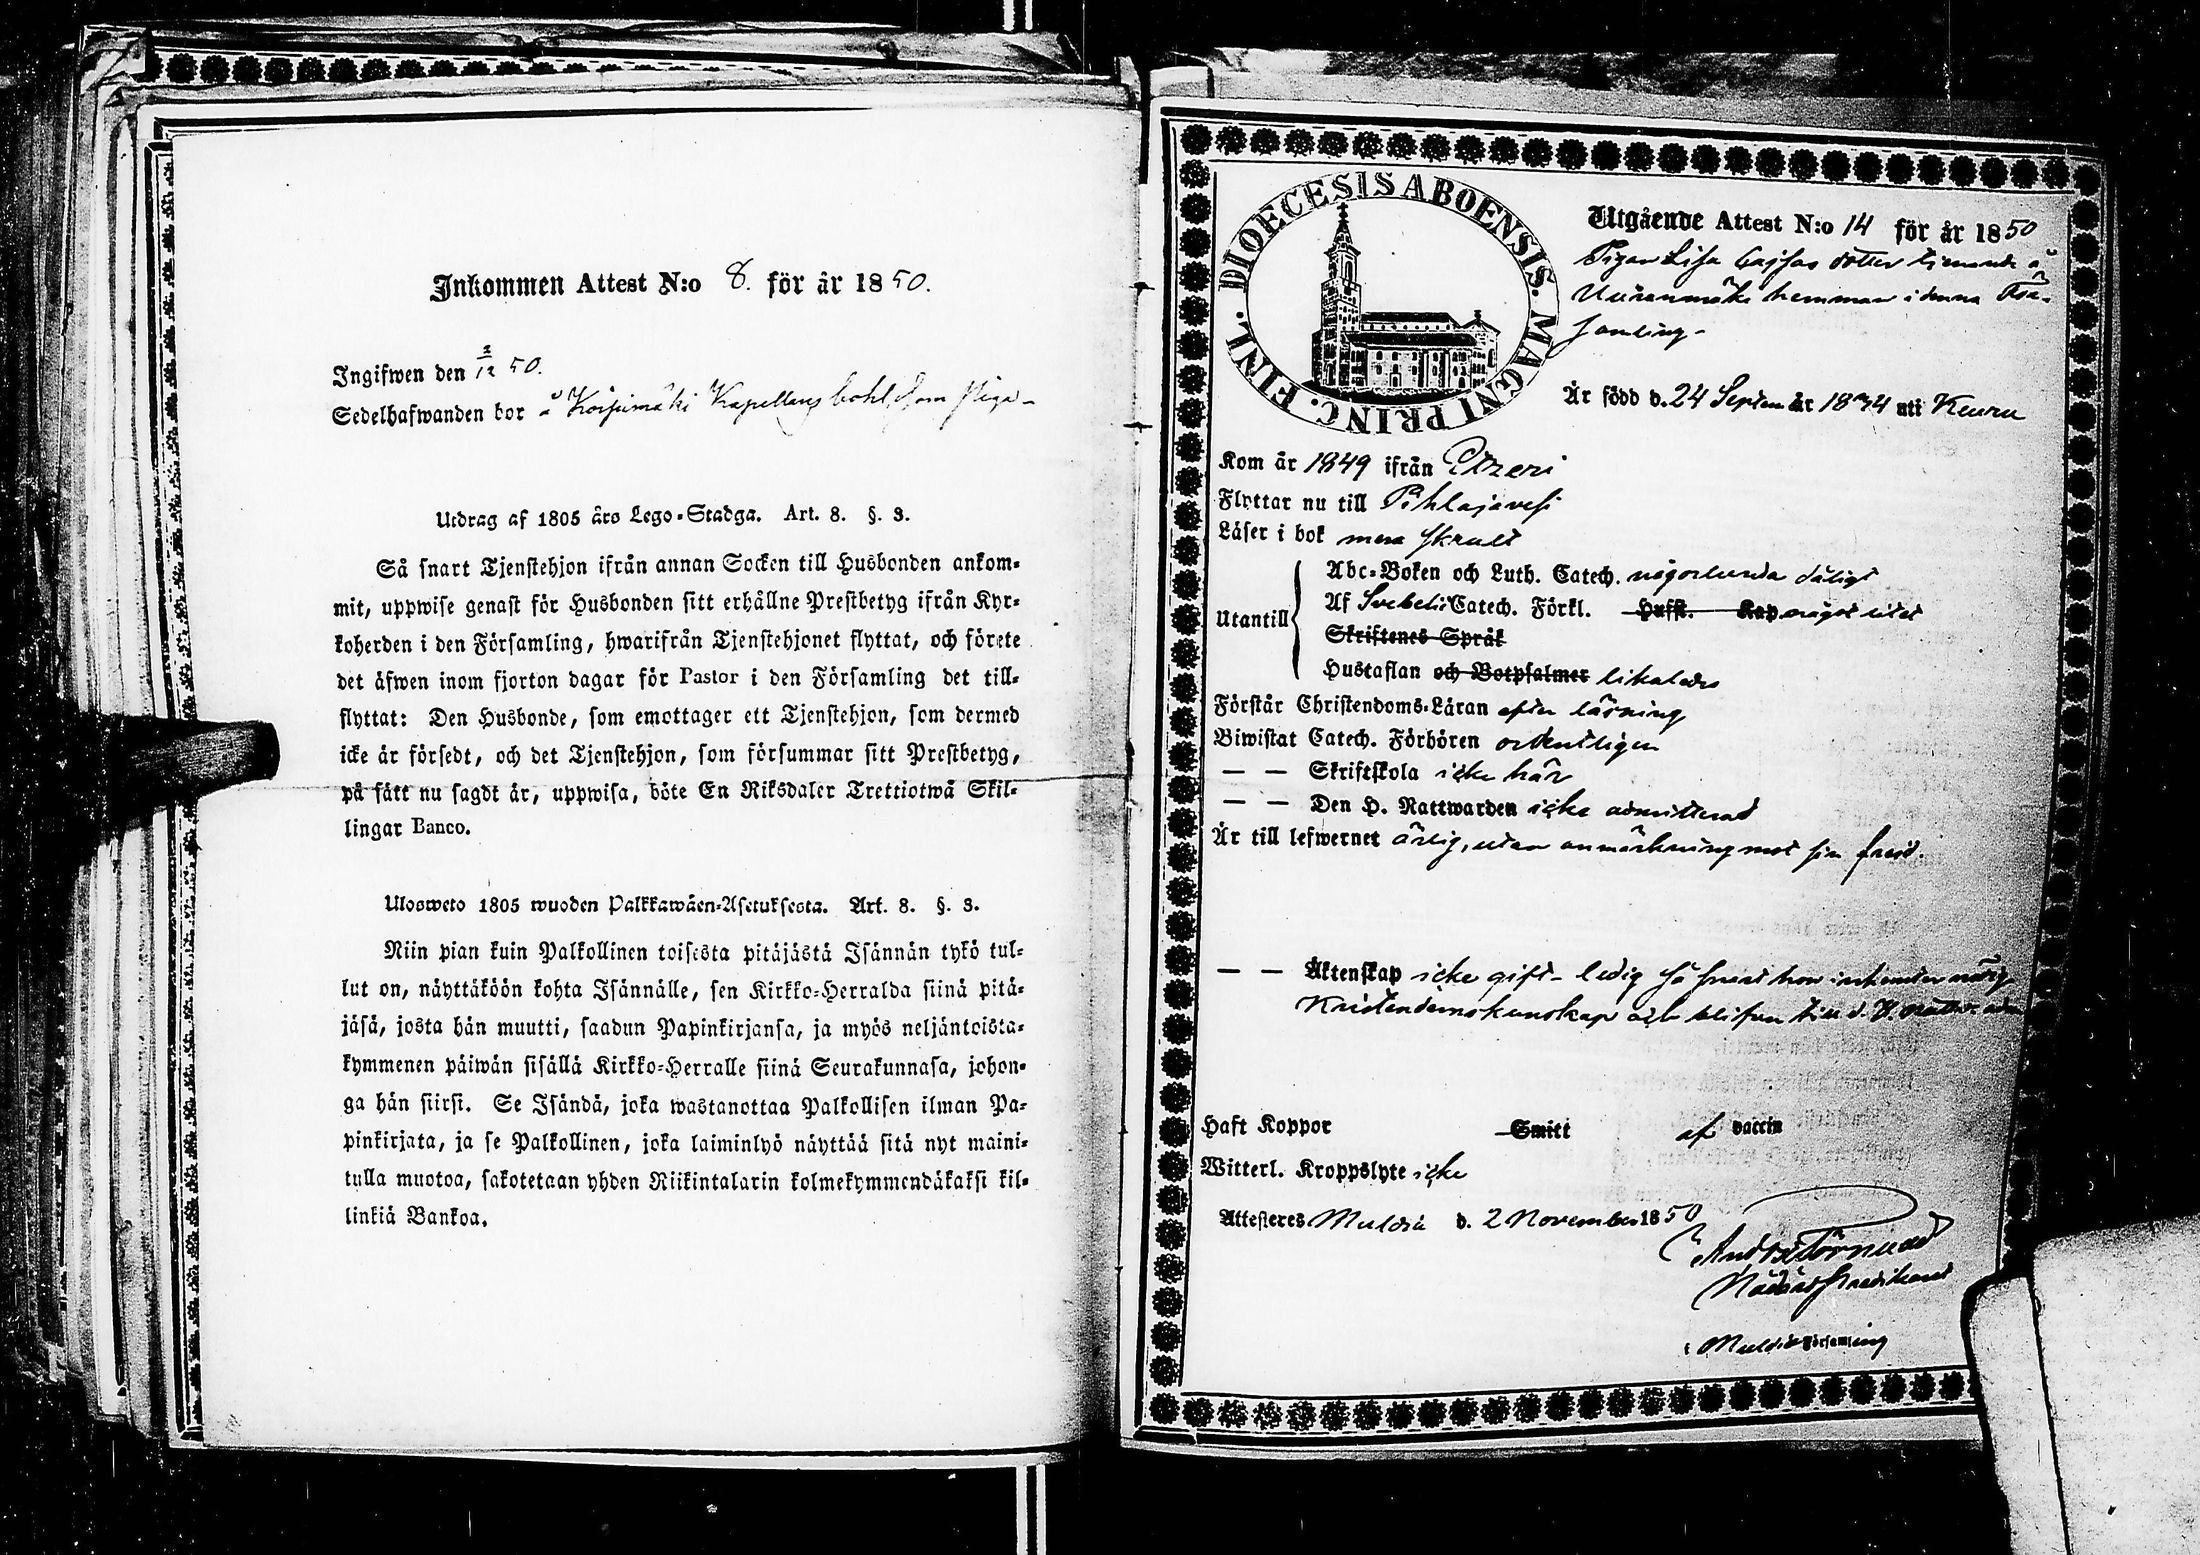 Inkommen Attest N:o 8. för år 1850.
Ingifwen den 2/12 50.
Sedelhafwanden bor å Korpimäki Kapellans bohl som piga
Utdrag af 1805 års Lego-Stadga. Art. 8. §. 3.
Så snart Tjenstehjon ifrån annan Socken till Husbonden ankom-
mit, uppwise genast för Husbonden sitt erhållne Prestbetyg ifrån Kyr-
koherden i den Församling, hwarifrån Tjenstehjonet flyttat, och förete
det äfwen inom fjorton dagar för Pastor i den Församling det till-
flyttat: Den Husbonde, som emottager ett Tjenstehjon, som dermed
icke är försedt, och det Tjenstehjon, som försummar sitt Prestbetyg,
på sätt nu sagdt är, uppwisa, böte En Riksdaler Trettiotwå Skil-
lingar Banco.
Ulosweto 1805 wuoden Palkkawäen-Asetuksesta. Art. 8. §. 3.
Niin pian kuin Palkollinen toisesta pitäjästä Isännän tykö tul-
lut on, näyttäköön kohta Isännälle, sen Kirkko-Herralda siinä pitä-
jäsä, josta hän muutti, saadun Papinkirjansa, ja myös neljäntoista-
kymmenen päiwän sisällä Kirkko-Herralle siinä Seurakunnasa, johon-
ga hän siirsi. Se Isändä, joka wastanottaa Palkollisen ilman Pa-
pinkirjata, ja se Palkollinen, joka laiminlyö näyttää sitä nyt maini-
tulla muotoa, sakotetaan yhden Riikintalarin kolmekymmendäkaksi kil-
linkiä Bankoa.
DIOECESIS ABOENSIS. MAGNI PRINC. FINL.
Utgående Attest N:o 14 för år 1850
Pigan Lisa Cajsas dotter tjenande å
Uuranmäki hemman i denna För-
samling-
Är född d. 24 Septem år 1834 uti Keuru
Kom år 1849 ifrån Etzeri
Flyttar nu till Pihlajavesi
Läser i bok mera skralt
Utantill
Abc-Boken och Luth. Catech. någorlunda dåligt
Af Svebelii Catech. Förkl. Hufst. Kap något litet
Skriftenes Språk
Hustaflan och Botpsalmer likaledes
Förstår Christendoms-Läran efter läsning
Biwistat Catech. Förhören ordentligen
— — Skriftskola icke här
— — Den H. Nattwarden icke admitterad
Är till lefwernet ärlig, utan anmärkning mot sin frejd.
— — Äktenskap icke gift - ledig så snart hon inhemtar nödig
Kristendomskunskap och blifven till d. H. Nattv. adm
Haft Koppor Smitt af vaccin
Witterl. Kroppslyte icke
Attesteres Muldia d. 2 November 1850
And: Törnudd
Nådårspredikant
i Muldia Församling